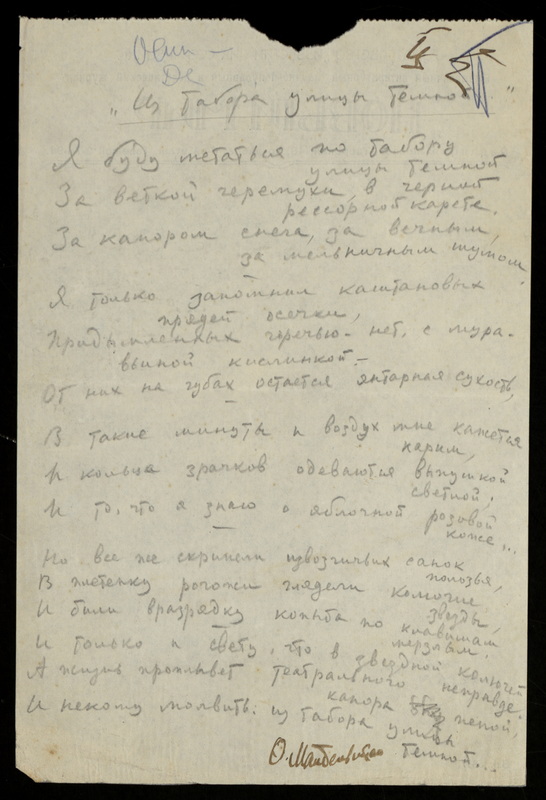 „Из табора улицы темной"
Я буду метаться по табору
улицы темной
За веткой черемухи в черной
рессорной карете.
За капором снега, за вечным,
за мельничным шумом
Я только запомнил каштановых
прядей осечки,
Придымленных горечью – нет, с мура-
вьиной кислинкой –
От них на губах остается янтарная сухость,
В такие минуты и воздух мне кажется
карим,
И кольца зрачков одеваются выпушкой
светлой;
И то, что я знаю о яблочной розовой
коже...
Но все же скрипели извозчичьих санок
полозья,
В плетенку рогожи глядели колючие
звезды,
И били вразрядку копыта по клавишам
мерзлым.
И только и свету, что в звездной колючей
неправде.
А жизнь проплывет театрального
капора пеной,
И некому молвить: из табора улицы
темной...
О. Мандельштам